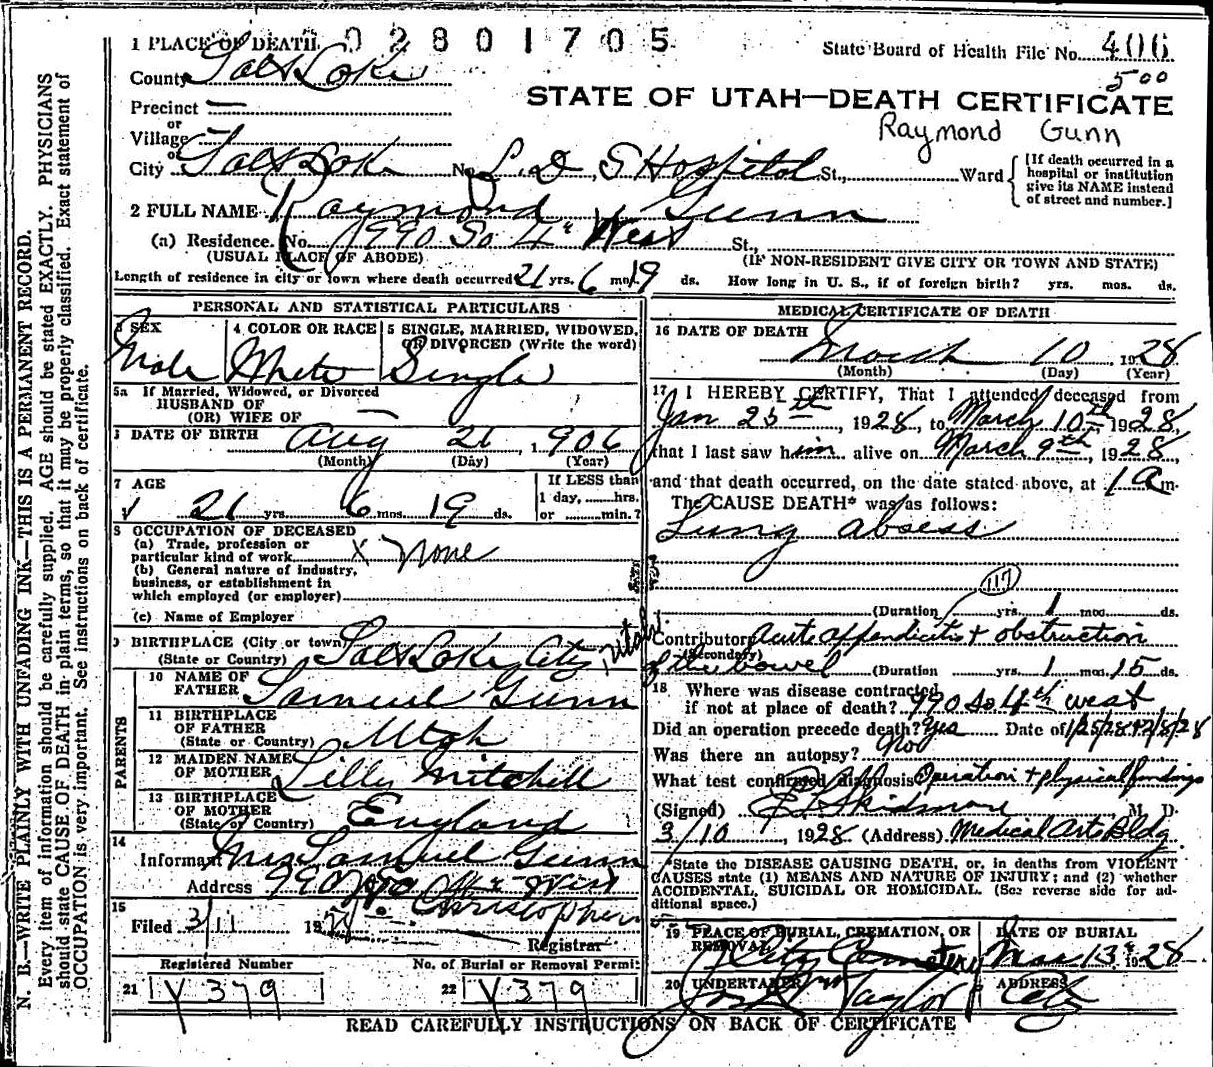 1 PLACE OF DEATH 02801705
State Board of Health File No. 406
5 00
County Salt Lake
STATE OF UTAH—DEATH CERTIFICATE
Precinct —
or
Village —
or
Raymond Gunn
City Salt Lake No. L. D. S Hospital St., Ward
[If death occurred in a hospital or institution give its NAME instead of street and number.]
2 FULL NAME Raymond Gunn
(a) Residence. No. 990 So 4th West St.,
(USUAL PLACE OF ABODE) (IF NON-RESIDENT GIVE CITY OR TOWN AND STATE)
Length of residence in city or town where death occurred 21 yrs. 6 mos. 19 ds. How long in U. S., if of foreign birth? yrs. mos. ds.
PERSONAL AND STATISTICAL PARTICULARS
3 SEX Male
4 COLOR OR RACE White
5 SINGLE, MARRIED, WIDOWED, OR DIVORCED (Write the word) Single
5a If Married, Widowed, or Divorced
HUSBAND OF
(OR) WIFE OF —
DATE OF BIRTH Aug 21, 1906
(Month) (Day) (Year)
7 AGE 21 yrs. 6 mos. 19 ds.
If LESS than
1 day, hrs.
or min.?
8 OCCUPATION OF DECEASED
(a) Trade, profession or
particular kind of work X None
(b) General nature of industry,
business, or establishment in
which employed (or employer)
(c) Name of Employer
9 BIRTHPLACE (City or town)
(State or Country) Salt Lake City, Utah
PARENTS
10 NAME OF
FATHER Samuel Gunn
11 BIRTHPLACE
OF FATHER
(State or Country) Utah
12 MAIDEN NAME
OF MOTHER Lilly Mitchell
13 BIRTHPLACE
OF MOTHER
(State or Country) England
14
Informant Mrs Samuel Gunn
Address 990 So 4th West
15
Filed 3/11 1928 Christopherson
Registrar
Registered Number No. of Burial or Removal Permit
21 Y379 22 Y379
MEDICAL CERTIFICATE OF DEATH
16 DATE OF DEATH
March 10 1928
(Month) (Day) (Year)
17 I HEREBY CERTIFY, That I attended deceased from
Jan 25th, 1928, to March 10th 1928,
that I last saw him alive on March 9th, 1928
and that death occurred, on the date stated above, at 1 a m.
The CAUSE DEATH* was as follows:
Lung absess
117
(Duration yrs. 1 mos. ds.
Contributory Acute appendicitis + obstruction
(Secondary)
of the bowel (Duration yrs. 1 mos. 15 ds.
18 Where was disease contracted
if not at place of death? 990 So 4th west
Did an operation precede death? Yes Date of 1/25/28 + 2/8/28
Was there an autopsy? No
What test confirmed diagnosis? Operation + physical findings
(Signed) E L Skidmore M. D.
3/10, 1928 (Address) Medical Arts Bldg.
*State the DISEASE CAUSING DEATH, or, in deaths from VIOLENT
CAUSES state (1) MEANS AND NATURE OF INJURY; and (2) whether
ACCIDENTAL, SUICIDAL OR HOMICIDAL. (See reverse side for ad-
ditional space.)
19 PLACE OF BURIAL, CREMATION, OR
REMOVAL
City Cemetery
DATE OF BURIAL
Mar 13th 1928
20 UNDERTAKER Taylor
ADDRESS City
READ CAREFULLY INSTRUCTIONS ON BACK OF CERTIFICATE
N. B.—WRITE PLAINLY WITH UNFADING INK—THIS IS A PERMANENT RECORD.
Every item of information should be carefully supplied. AGE should be stated EXACTLY. PHYSICIANS
should state CAUSE OF DEATH in plain terms, so that it may be properly classified. Exact statement of
OCCUPATION is very important. See instructions on back of certificate.